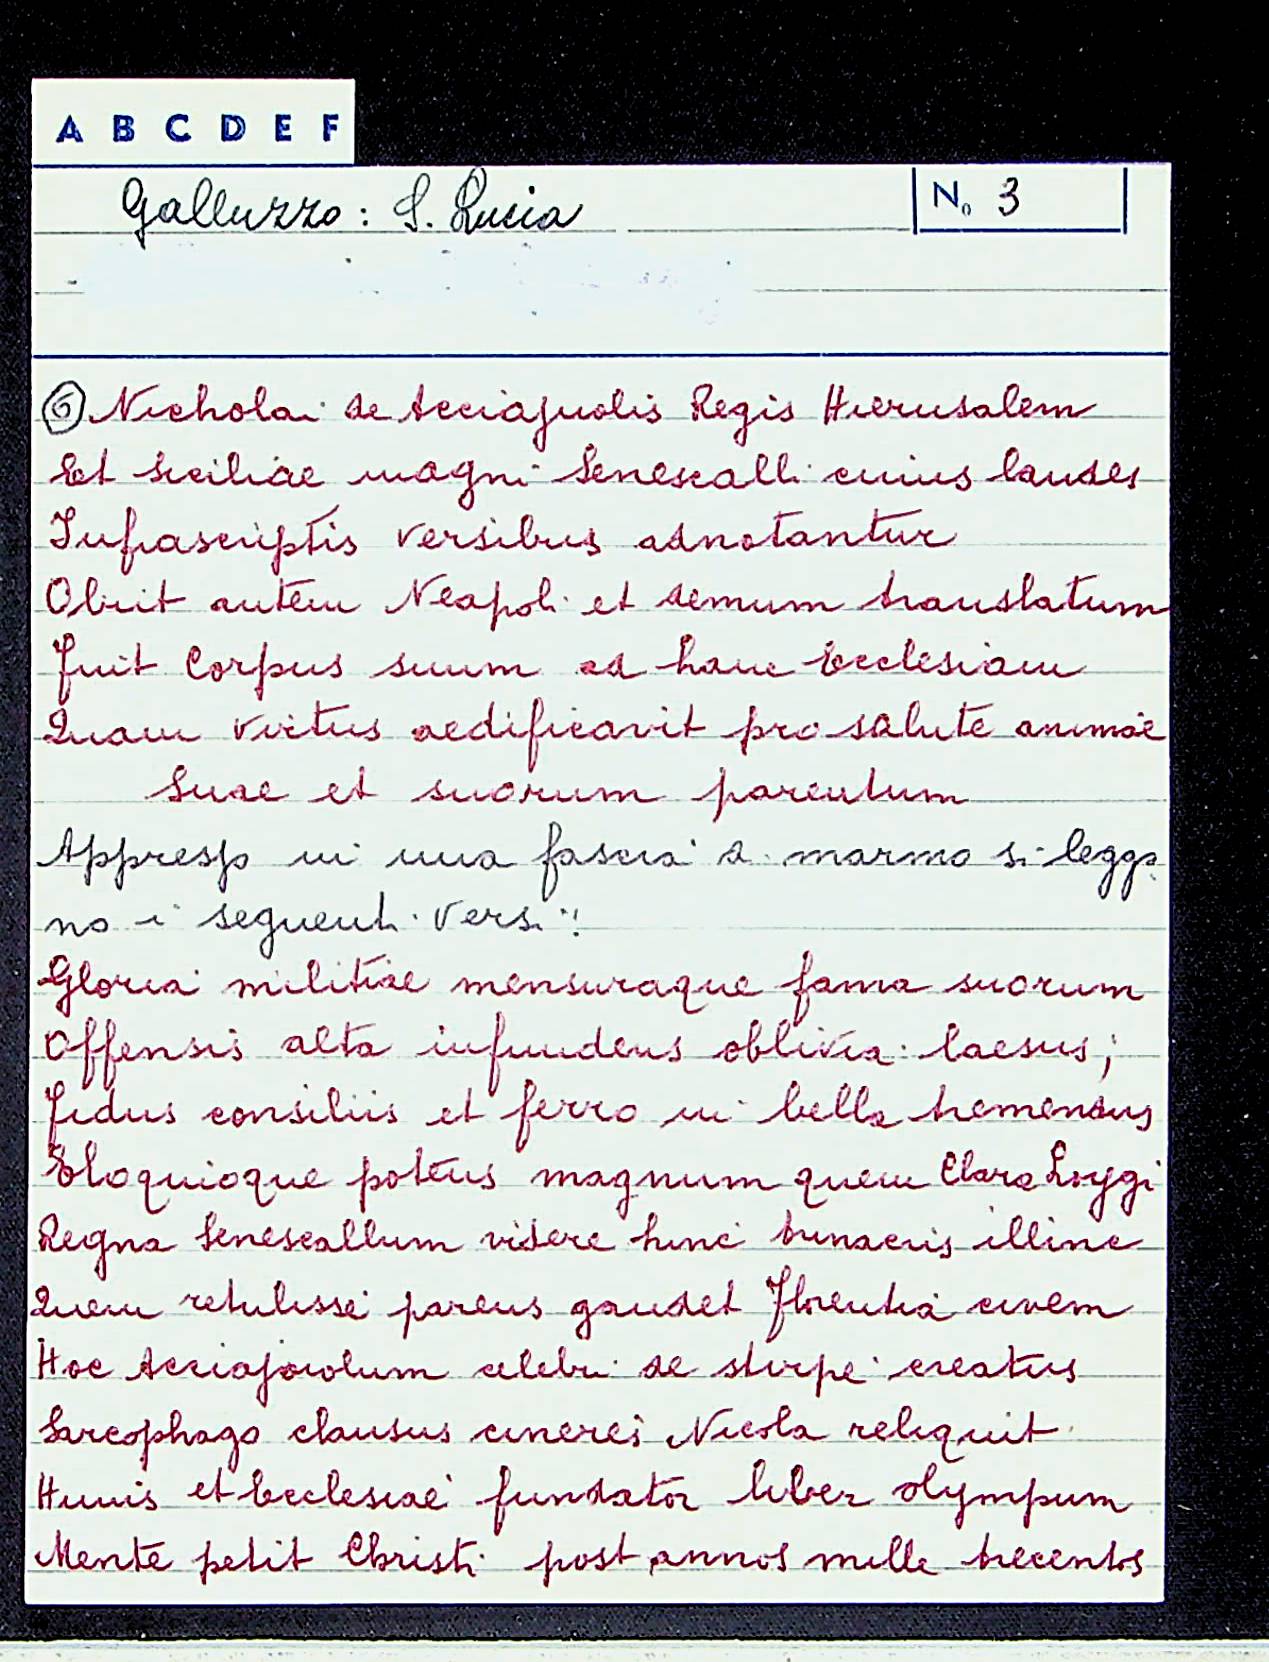 A B C D E F
Galluzzo: S. Lucia
No 3
6 Nicholai de Acciajuolis Regis Hierusalem
Et Siciliae magni Senescalli cuius laudes
Infrascriptis versibus adnotantur
Obiit autem Neapoli et demum translatum
fuit Corpus suum ad hanc Ecclesiam
Quam virtus aedificavit pro salute animae
Suae et suorum parentum
Appresso in una fascia di marmo si leggo-
no i seguenti versi:
Gloria militiae mensuraque fama suorum
Offensis alta infundens oblivia laesus;
fidus consiliis et ferro in bella tremendus
Eloquioque potens magnum quem Clara Loygi
Regna Senescallum videre hinc trinacris illinc
Quem retulisse parens gaudet Florentia civem
Hoc Acciajorolum celebri de stirpe creatus
Sarcophago clausus cineres Nicola reliquit
Huius et Ecclesiae fundator liber olympum
Mente petit Christi post annos mille trecentos